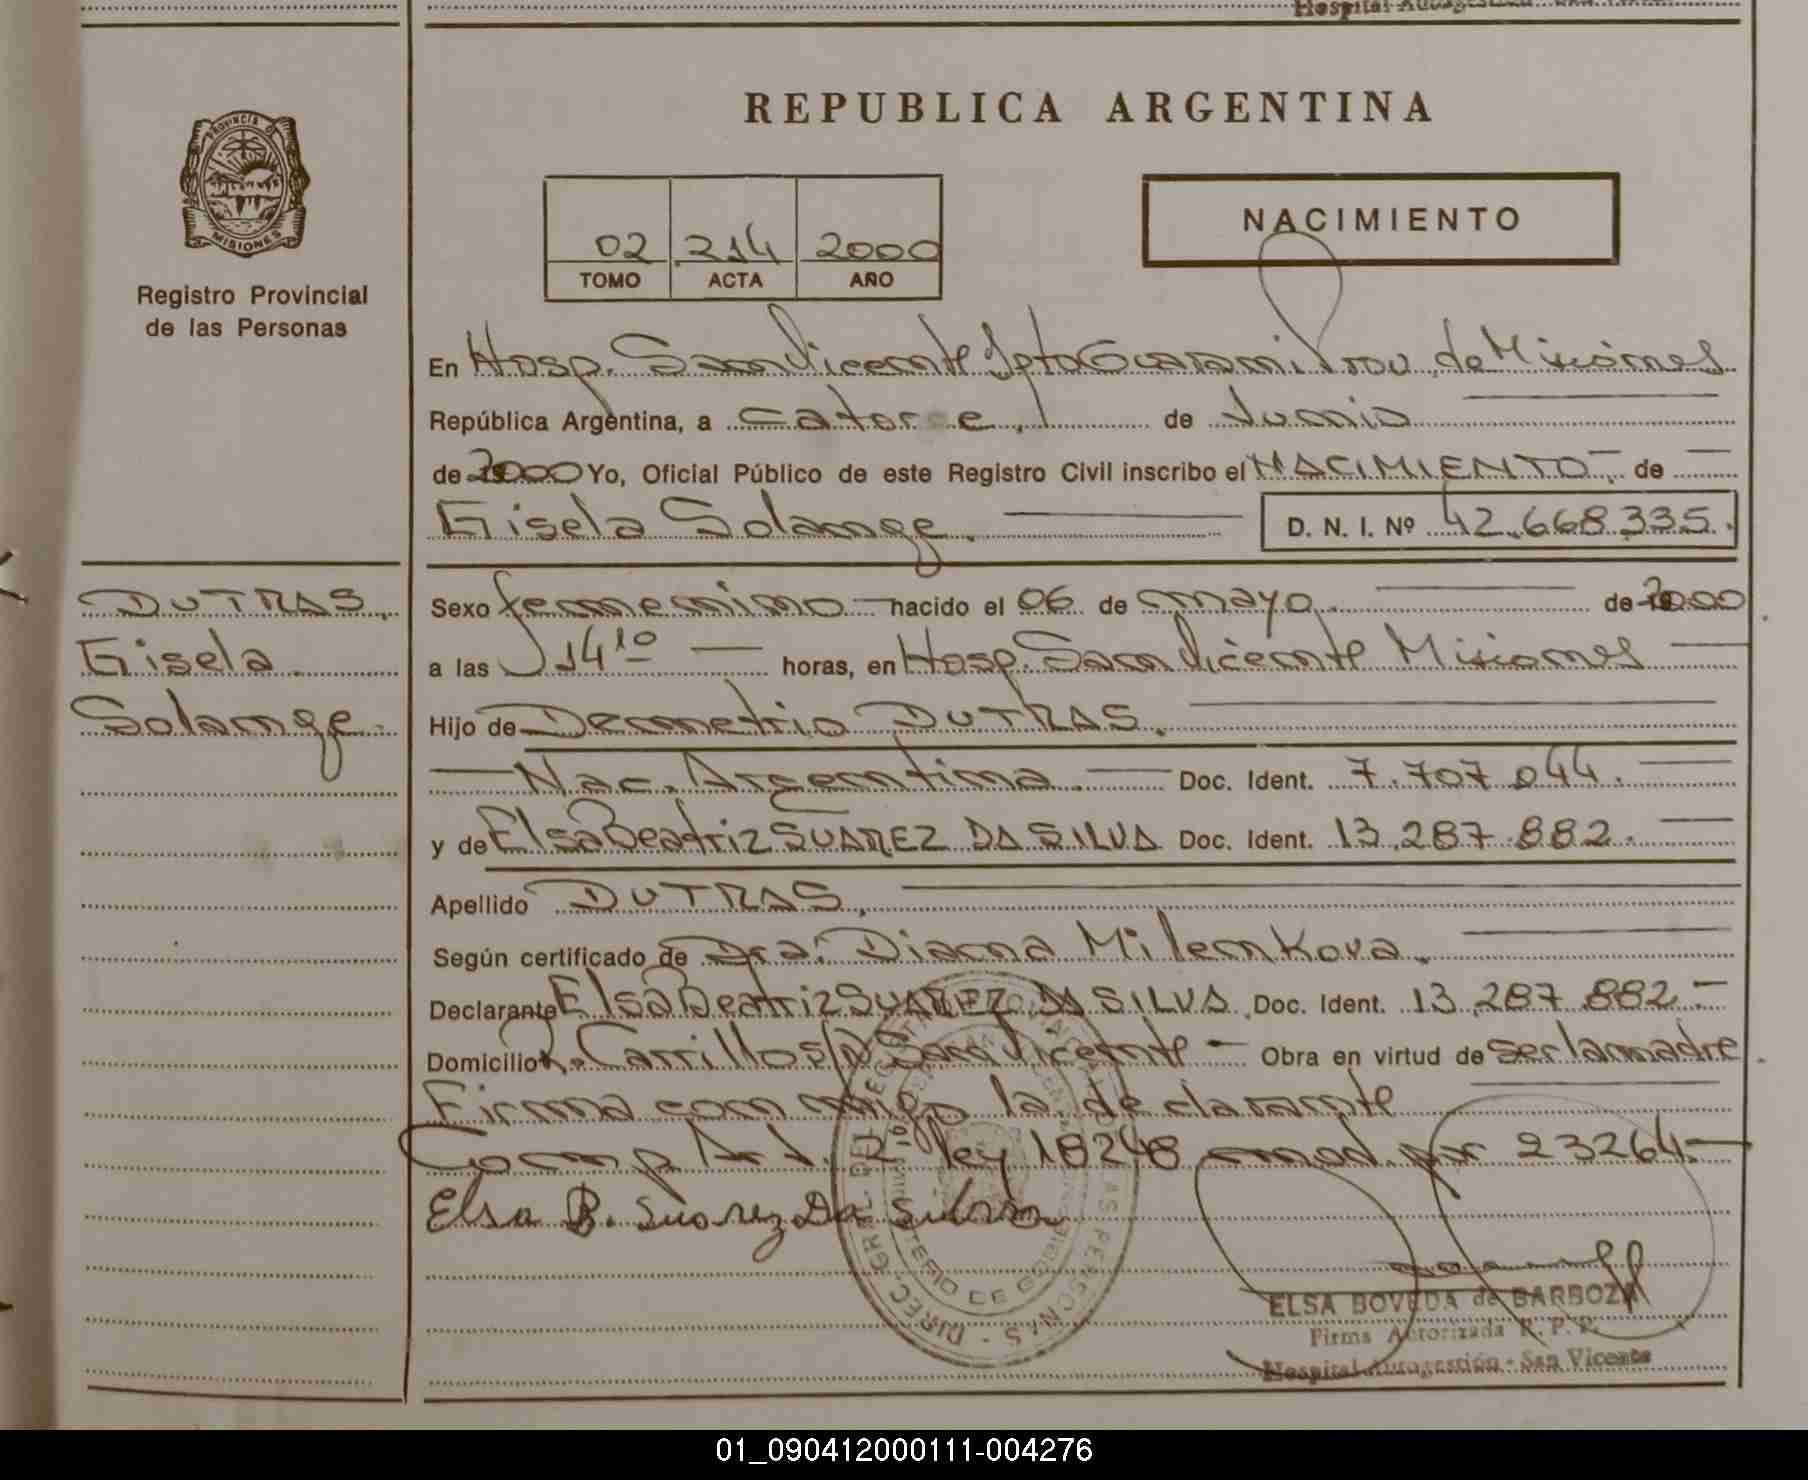 Hospital Autogestión
REPUBLICA ARGENTINA
PROVINCIA D
MISIONES
Registro Provincial
de las Personas
NACIMIENTO
02 214 2000
TOMO ACTA AÑO
En Hosp. San Vicente Dpto Guarani Prov. de Misiones
República Argentina, a catorce, de Junio
de 2000 Yo, Oficial Público de este Registro Civil inscribo el NACIMIENTO de
Gisela Solange. D. N. I. Nº 42.668.335.
DUTRAS,
Gisela
Solange.
Sexo femenino nacido el 06 de mayo de 2000
a las 14 10 horas, en Hosp. San Vicente Misiones
Hijo de Demetrio DUTRAS.
Nac. Argentina. Doc. Ident. 7.707.044.
y de Elsa Beatriz SUAREZ DA SILVA Doc. Ident. 13.287.882.
Apellido DUTRAS,
Según certificado de Dra. Diana Milenkova.
Declarante Elsa Beatriz SUAREZ DA SILVA, Doc. Ident. 13.287.882
Domicilio R. Carrillo s/n San Vicente Obra en virtud de ser la madre
Firma conmigo la declarante
Comp. Art. 2 ley 18248 mod. por 23264.
Elsa B. Suarez Da Silva
ELSA BOVEDA de BARBOZA
Firma Autorizada R. P. P.
Hospital Autogestión - San Vicente
01_090412000111-004276